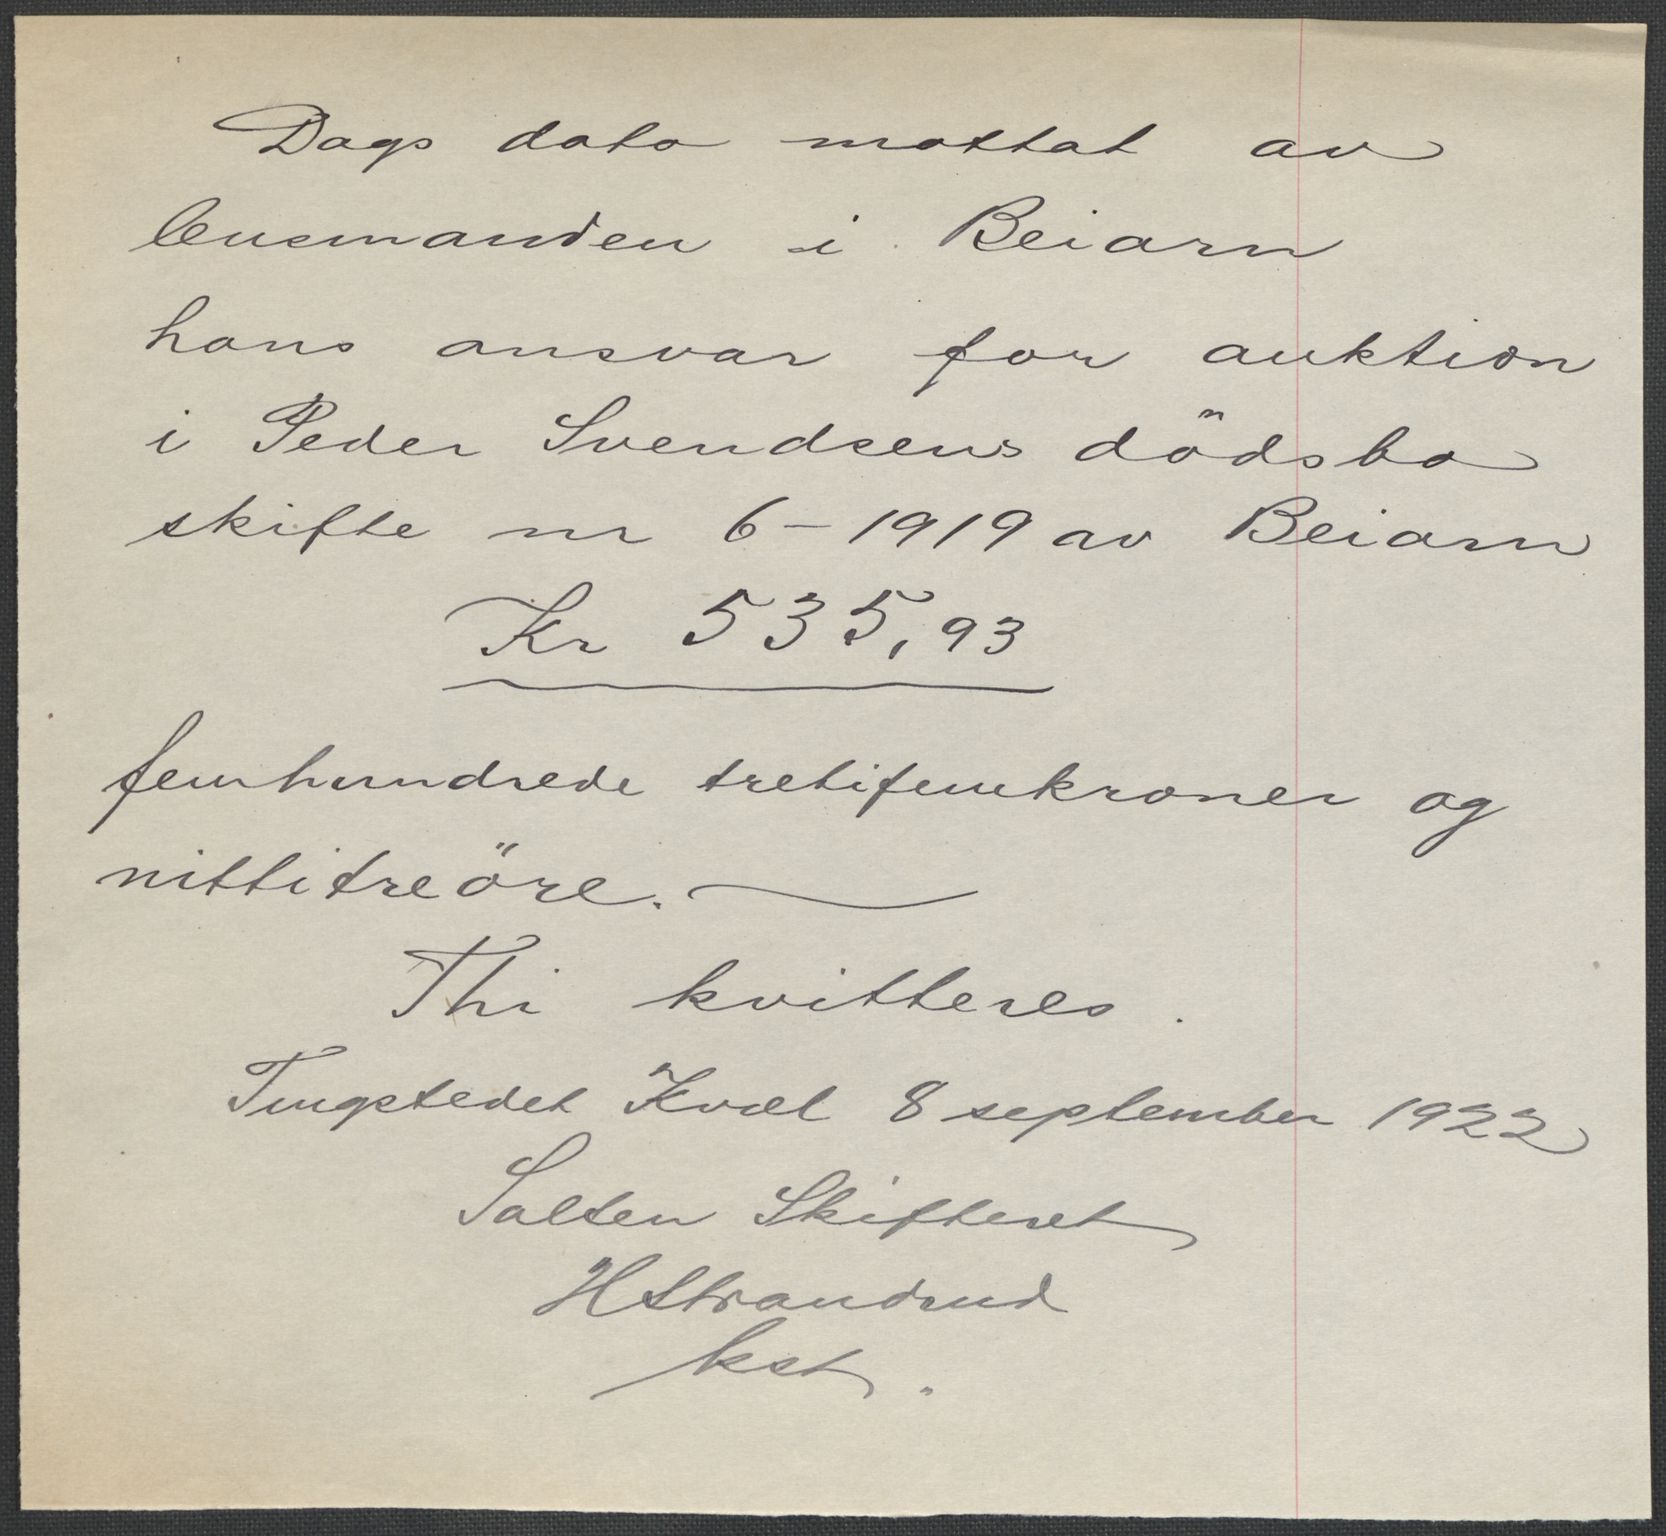 Dags dato mottat av
lensmanden i Beiarn
hans ansvar for auktion
i Peder Svendsens dödsbo
skifte nr 6-1919 av Beiarn
Kr 535,93
femhundrede tretifemkroner og
nittitreöre.
Thi kvitteres.
Tingstedet Kvæl 8 september 1922
Salten Skifteret
HStrandrud
kst.